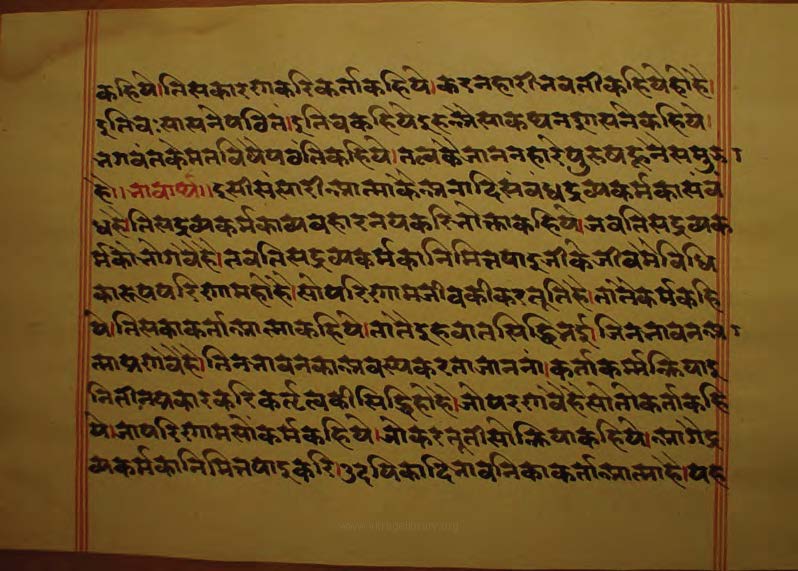 कहिये।तिसकारणकरिकर्ताकहिये।करनहारीनवतीकहियेहोहै।
इतिवःसासनेपवितं।इतिवकहियेइहअैसाकथनइासनेकहिये।
भगवंतकेमतविषैपवंतिकहिये।तत्वकेजाननहारेपुरुषहूनेसमुऊ
है।।भावार्थ।।इसीसंसारीआत्माकेअनादिसंवंधद्रव्यकर्मकासंव
धहैतिसद्रव्यकर्मकाव्यवहारनयकरिभोक्ताकहिये।जवतिसद्रव्यक
र्मकोभोगवैहै।तवतिसद्रव्यकर्मकानिमित्तपाइजीकेजीवमेविधि
कारूपपरिणामहोहै।सोपरिणामजीवकीकरतूतिहै।तातैकर्मकहि
ये।तिसकाकर्ताआत्माकहिये।तातैइहवातसिद्धिभई।जिनभावनआ
त्माप्रणवैहै।तिनभावनकाअवस्यकरताजाननां।कर्ताकर्मक्रियाइ
नितीनप्रकारकरिकर्तृत्वकीसिद्धिहोहै।जोपरणवैहैसोतोकर्ताकहि
ये।जोपरिणामसोकर्मकहिये।जोकरतूतीसोक्रियाकहिये।आगैद्र
व्यकर्मकानिमित्तपाइकरि।उदयिकादिभावनिकाकर्ताआत्माहै।यह
www.vitragelibrary.org